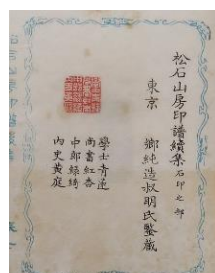 松石山房印譜續集石印之部
東京 鄉純造叔明氏鑒藏
學士青蓮
尚書紅杏
中郎綠綺
內史黃庭